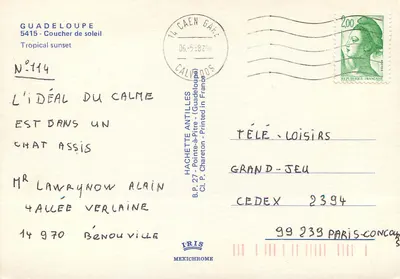 GUADELOUPE
5415 - Coucher de soleil
Tropical sunset
N° 114
L'IDÉAL DU CALME
EST DANS UN
CHAT ASSIS
MR LAWRYNOW ALAIN
4 ALLÉE VERLAINE
14 970 BÉNOUVILLE
HACHETTE ANTILLES
B.P. 27 - Pointe-à-Pitre - (Guadeloupe)
Cl. P. Chareton - Printed in France
IRIS
MEXICHROME
14 CAEN GARE
CALVADOS
2,00
TÉLÉ-LOISIRS
GRAND-JEU
CEDEX 2394
99 239 PARIS-CONCOURS